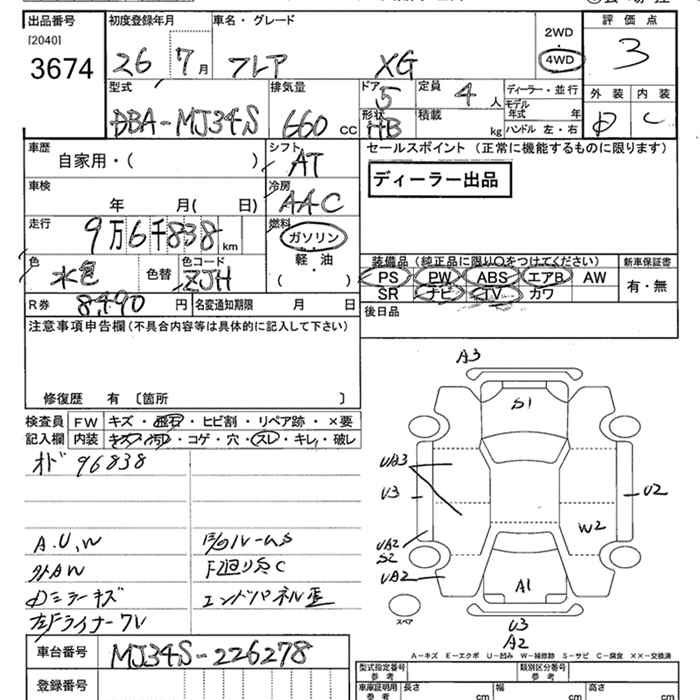 出品番号 初度登録年月 車名・グレード 評価点
[2040] 2WD
3674 26 7月 フレア XG 4WD 3
型式 排気量 ドア 5 定員 4人 ディーラー・並行 外装 内装
モデル年式 年
DBA-MJ34S 660 CC 形状 HB 積載 kg ハンドル 左・右 D C
車歴 シフト セールスポイント (正常に機能するものに限ります)
自家用・( ) AT
ディーラー出品
車検 冷房
年 月( 日) AAC
走行 燃料
9万6千838 km ガソリン
軽・油
( )
色 色コード 装備品 (純正品に限り○をつけてください) 新車保証書
水色 色替 ZJH PS PW ABS エアB AW 有・無
SR ナビ TV カワ
R券 8,490円 名変通知期限 月 日 後日品
注意事項申告欄 (不具合内容等は具体的に記入して下さい)
修復歴 有 〔箇所 〕
検査員 FW キズ・飛石・ヒビ割・リペア跡・×要
記入欄 内装 キズ・汚れ・コゲ・穴・スレ・キレ・破レ
オド 96838
A.U,W
外AW F廻り错C
Dミラーキズ エンドパネル歪
左ドライナーワレ
A3
S1
UA3
U3
U2
W2
UA2
S2
UA2
A1
スペア
U3
A2
A-キズ E-エクボ U-凹み W-補修跡 S-サビ C-腐食 XX-交換済
車台番号 MJ34S-226278
型式指定番号 参考 類別区分番号 参考
登録番号 車庫証明用 参考 長さ cm 幅 cm 高さ cm